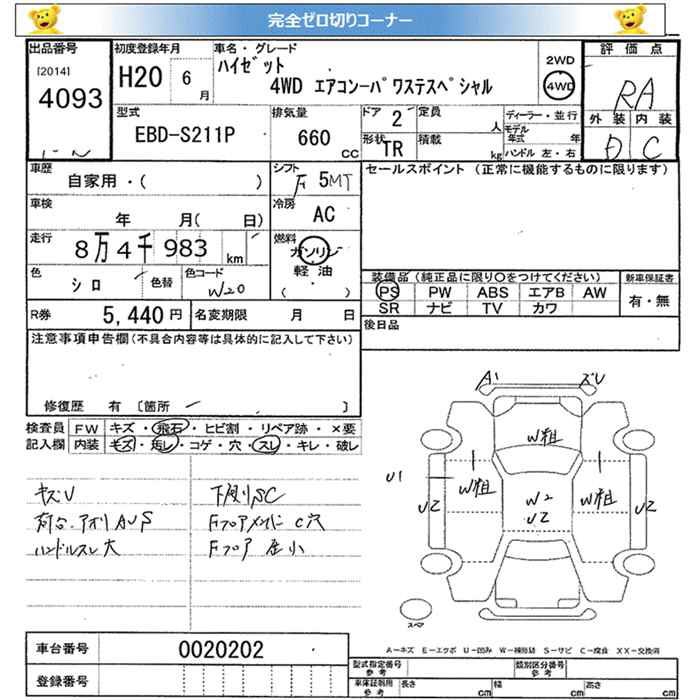 完全ゼロ切りコーナー
出品番号 初度登録年月 車名・グレード 評価点
[2014] 4093 H20 6月 ハイゼット 2WD
4WD エアコン-パワステスペシャル 4WD RA
型式 排気量 ドア 定員 ディーラー・並行 外装 内装
EBD-S211P 660 CC 2 人 モデル年式 年 D C
形状 TR 積載 kg ハンドル 左・右
車歴 自家用・( ) シフト F 5MT セールスポイント (正常に機能するものに限ります)
車検 年 月( 日) 冷房 AC
走行 8万4千983 km 燃料 ガソリン
軽油
( )
色 シロ 色替 色コード W20
装備品 (純正品に限り〇をつけてください) 新車保証書
PS PW ABS エアB AW 有・無
SR ナビ TV カワ
R券 5,440円 名変期限 月 日 後日品
注意事項申告欄(不具合内容等は具体的に記入して下さい)
修復歴 有 〔箇所 〕
検査員 FW キズ・飛石・ヒビ割・リペア跡・×要
記入欄 内装 キズ・汚レ・コゲ・穴・スレ・キレ・破レ
キズU 下廻りSC
荷台・アオリAUS Fフロアメンバー C穴
ハンドルスレ大 Fフロア 歪小
A1 ズU
W粗
U1 W粗 W2 W粗
UZ UZ UZ
スペア
A-キズ E-エクボ U-凹み W-補修跡 S-サビ C-腐食 XX-交換済
車台番号 0020202
登録番号
型式指定番号 参考 類別区分番号 参考
車庫証明用 参考 長さ cm 幅 cm 高さ cm